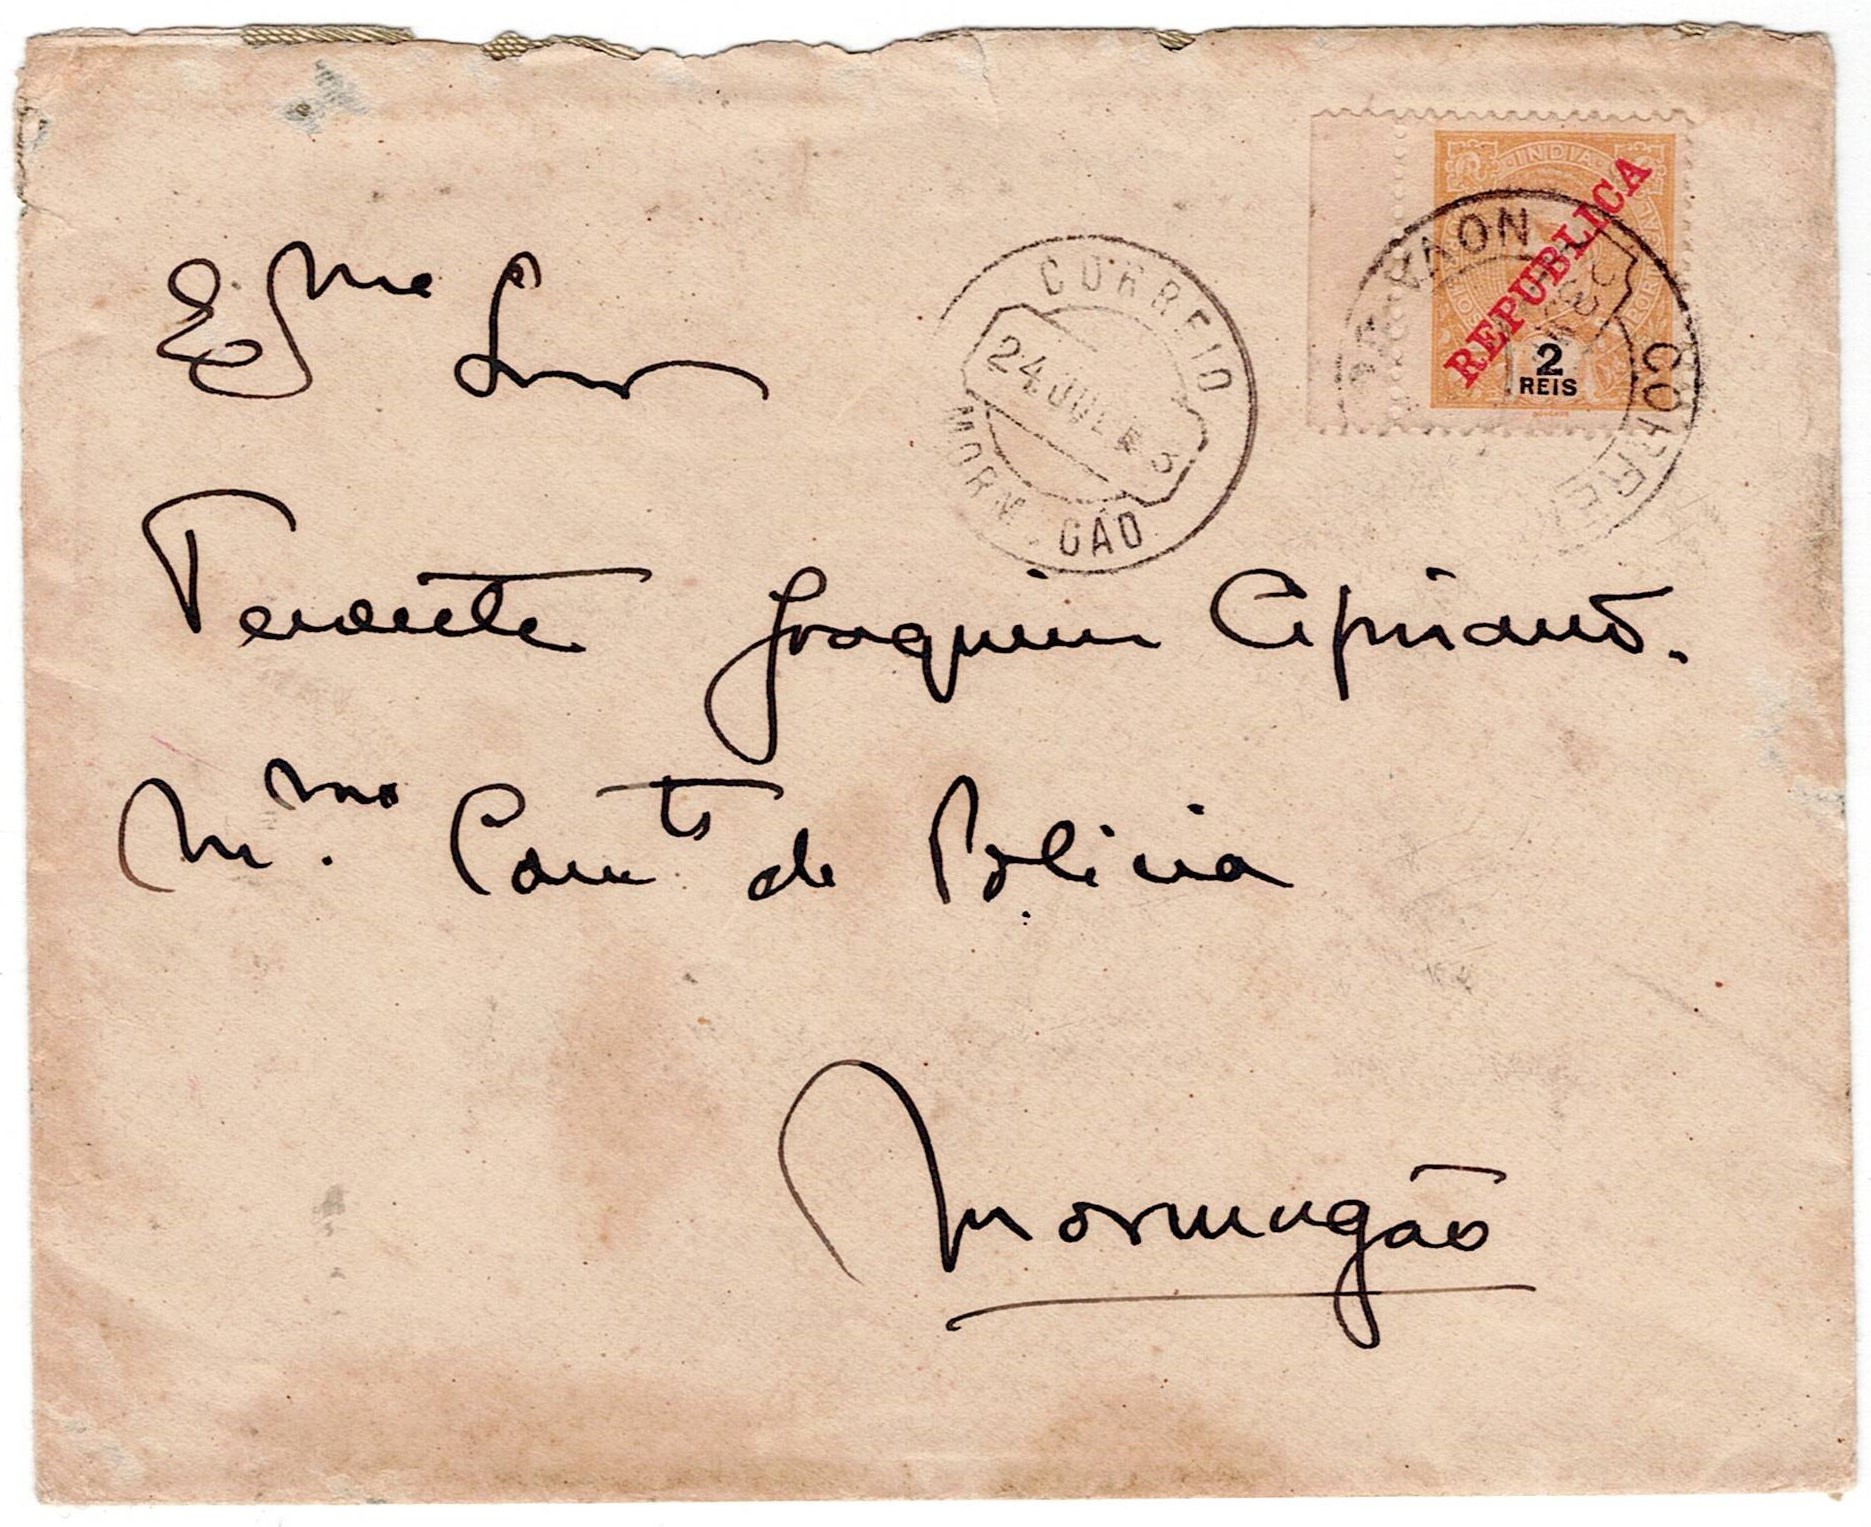 INDIA
REPUBLICA
2
REIS
CORREIO
24 JUL
MORM GÃO
CORREIO
Ex.ma Snr
Tenente Joaquim Cipriano.
M.mo Com.te de Policia
Mormugão